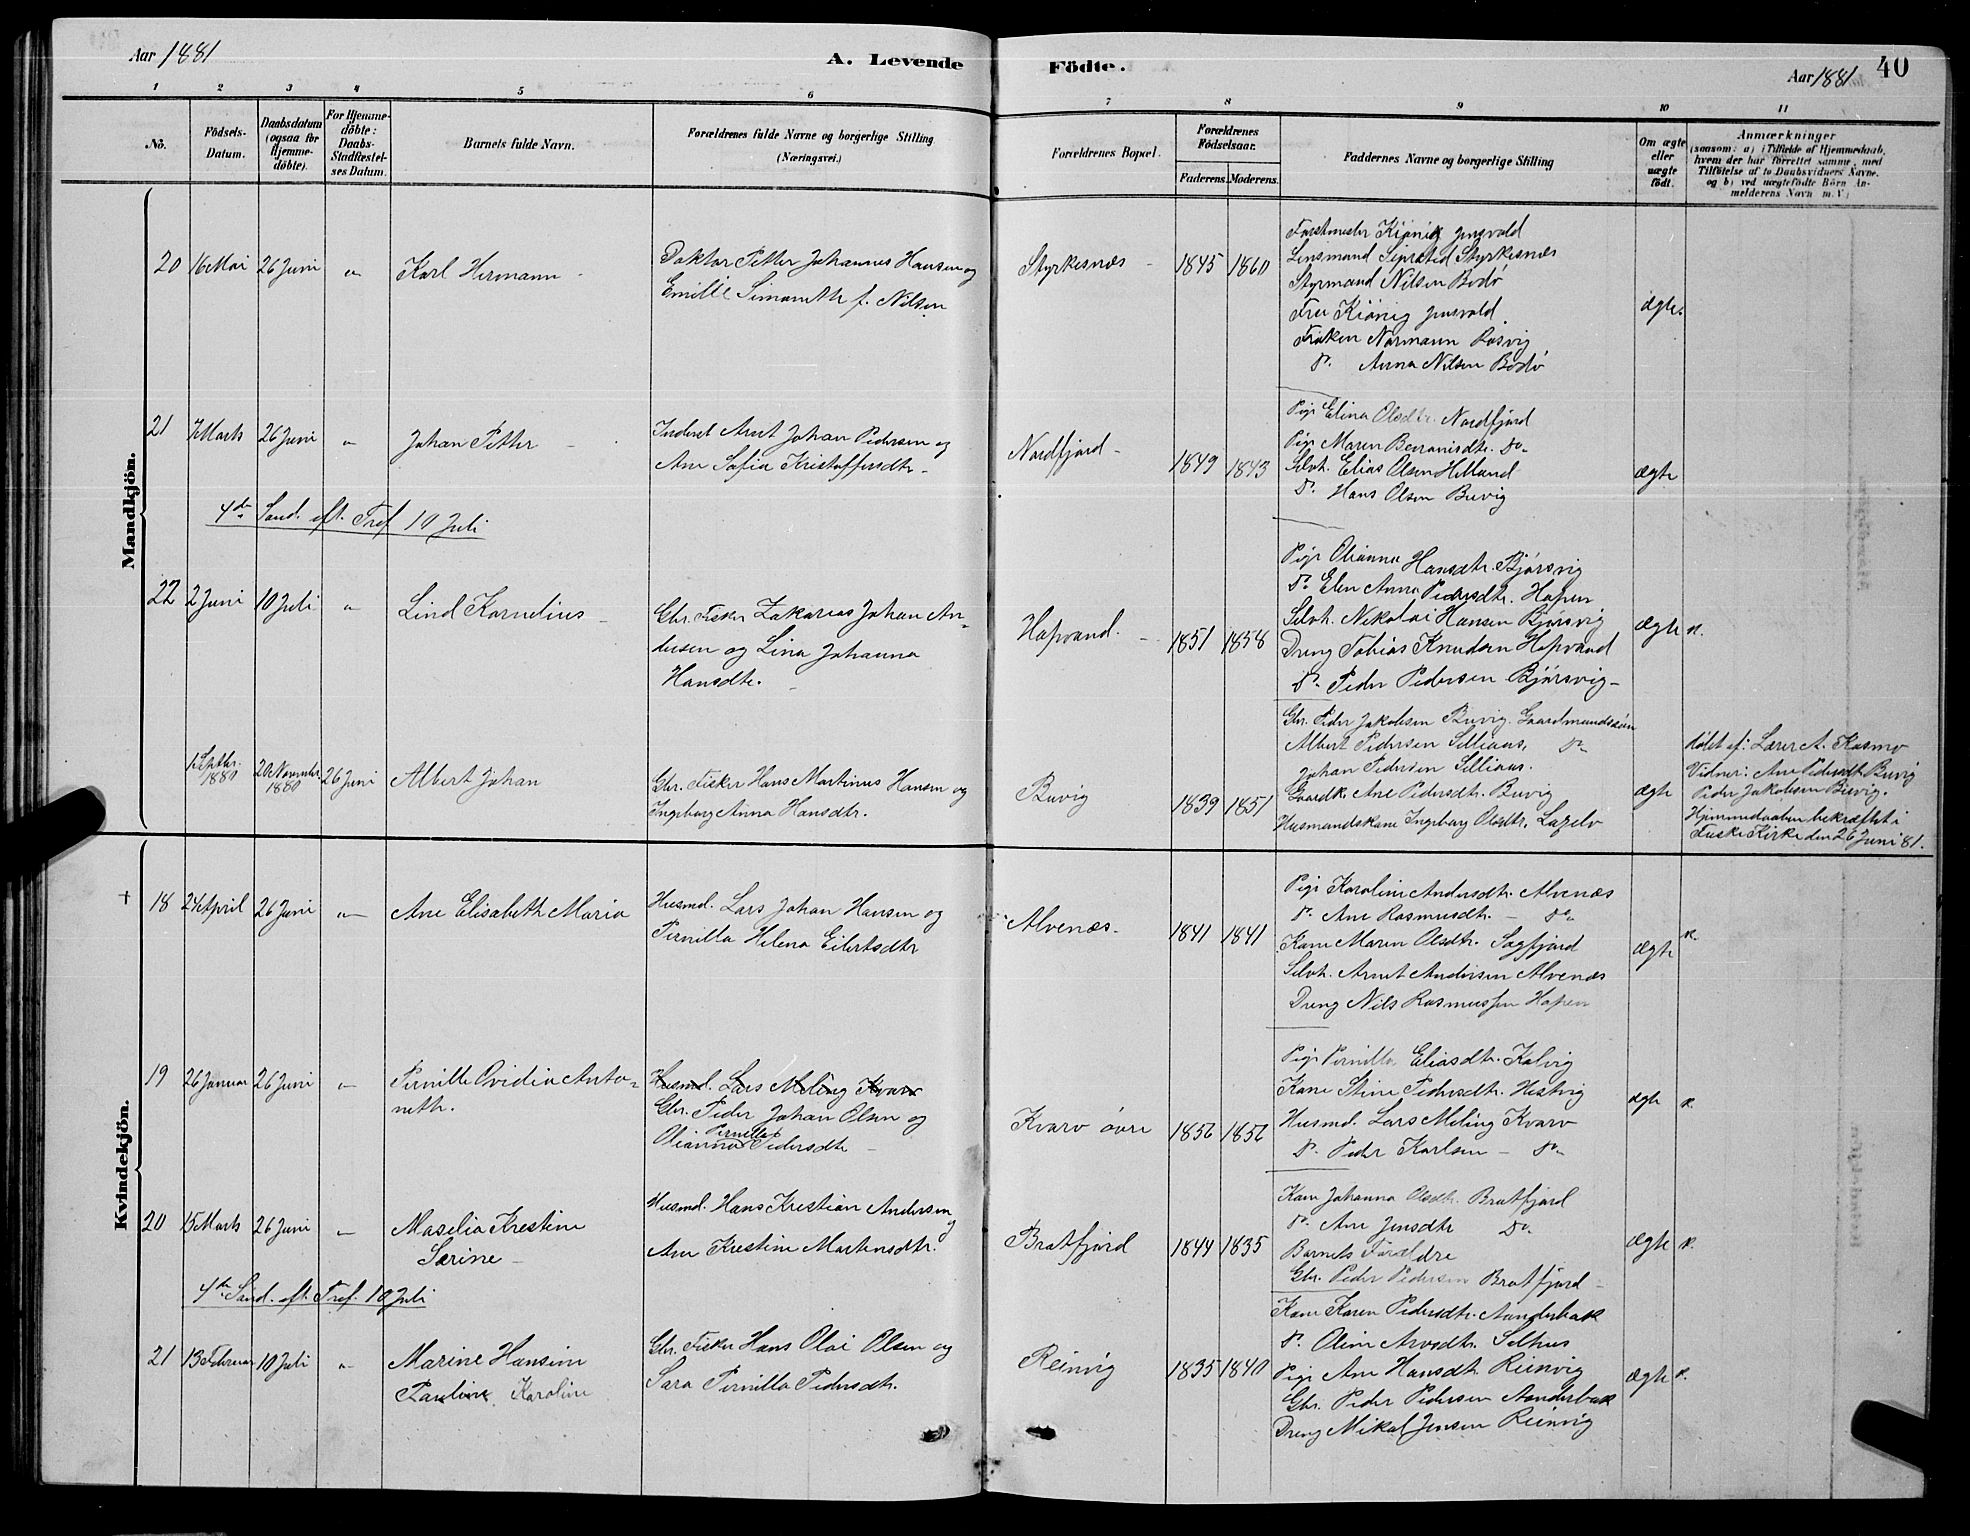 Aar 1881
A. Levende Födte.
Aar 1881
40
1 2 3 4 5 6 7 8 9 10 11
No.
Födsels-Datum.
Daabsdatum (ogsaa for Hjemme-döbte).
For Hjemme-döbte: Daabs-Stadfæstel-ses Datum.
Barnets fulde Navn.
Forældrenes fulde Navne og borgerlige Stilling (Næringsvei.)
Forældrenes Bopæl.
Forældrenes Födselsaar.
Faderens. Moderens.
Faddernes Navne og borgerlige Stilling
Om ægte eller uægte födt.
Anmærkninger
(saasom: a) i Tilfælde af Hjemmedaab, hvem der har forrettet samme, med Tilföielse af to Daabsvidners Navne. og b) ved uægtefödte Börn An-melderens Navn m. V.)
Mandkjön.
20 16 Mai 26 Juni " Karl Hermann
Doktor Petter Johannes Hansen og
Emilie f. Nilsen
Styrkesnæs 1845 1860
Forstmester Kiönig Junsvald
Lensmand Styrkesnæs
Styrmand Nilsen Bodö
Fru Kiönig Junsvald
Fröken Normann Røsvig
Do. Anna Nilsen Bodö
ægte
21 7 Marts 26 Juni " Johan Petter
Inderst Arnt Johan Pedersen og
Ane Sofia Kristoffersdtr.
Nordfjord 1849 1843
Pige Elina Olsdtr. Nordfjord
Pige Maren Do
Selvh. Elias Olsen Helland
Do. Hans Olsen Buvig
ægte
4de Sönd. eft. Tref. 10 Juli
22 2 Juni 10 Juli " Lind Kornelius
Gbr. Fisker Zakarias Johan An-
dersen og Lina Johanna
Hansdtr.
Hopvand. 1851 1858
Pige Olianna Hansdtr. Björsvig
Do. Elen Anna Pedersdtr. Hopen
Selvh. Nikolai Hansen Bjørsvig
Dreng Tobias Knudsen Hopvand
Do. Peder Pedersen Björsvig
ægte n.
1 Septbr. 1880 20 November 1880 26 Juni Albert Johan
Gbr. Fisker Hans Martinus Hansen og
Ingeborg Anna Hansdtr.
Buvig 1839 1851
Gbr. Peder Jakobsen Buvig. Gaardmandssön
Albert Pedersen Selliaas, Do
Johan Pedersen Selliaas.
Gaardk. Ane Pedersdtr. Buvig
Husmandskone Ingeborg Olsdtr.
ægte
döbt af: Lærer A. Kosmo
Vidner: Ane Pedersdt Buvig
Peder Jakobsen Buvig.
Hjemmedaaben bekræftet i
Fuske Kirke den 26 Juni 81.
Kvindekjön.
+ 18 24 April 26 Juni " Ane Elisabeth Maria
Husmd. Lars Johan Hansen og
Pernilla Helena Eilertsdtr
Alvenæs. 1841 1841
Pige Karoline Andersdtr. Alvenæs
Do. Ane Rasmusdtr. Do
Kone Maren Olsdtr. Sagfjord
Selvh. Arnt Andersen Alvenæs
Dreng Nils Rasmussen Hopen
ægte n.
19 26 Januar 26 Juni " Pernille Ovidia Anto-
neth.
Husmd. Lars Meling Kvarv
Gbr. Peder Johan Olsen og
Pernilla
Olianna Pedersdtr
Kvarv övre 1856 1856
Pige Pernilla Eliasdtr. Kalvig
Kone Stine Pedersdtr. Hestvig
Husmd. Lars Meling Kvarv
Do. Peder Karlsen Do
ægte n.
20 15 Marts 26 Juni " Maselia Krestine
Særine
Husmd. Hans Krestian Andersen
og
Ane Krestine Martensdtr.
Bratfjord 1844 1835
Kone Johanna Olsdtr. Bratfjord
Do. Ane Jensdtr Do
Barnets Forældre
Gbr. Peder Pedersen Bratfjord
ægte n.
4de Sönd. eft. Tref. 10 Juli
21 13 Februar 10 Juli " Marine Hansine
Pauline Karoline
Gbr. Fisker Hans Olai Olsen og
Sara Pernilla Pedersdtr.
Reinvig 1835 1840
Kone Karen Pedersdtr. Aanderbak
Do. Oline Arosdtr. Selhus
Pige Ane Hansdtr. Reinvig
Gbr. Peder Pedersen Aanderbak
Dreng Mikal Jensen Reinvig
ægte n.